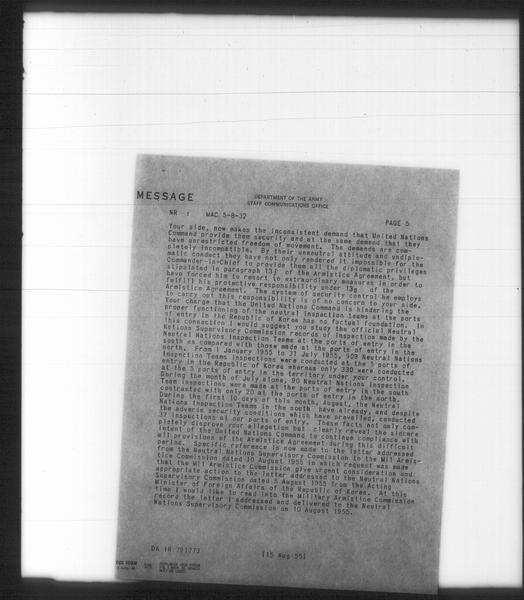 MESSAGE
DEPARTMENT OF THE ARMY
STAFF COMMUNICATIONS OFFICE
NR : MAC 5-8-32
PAGE 5
Your side, now makes the inconsistent demand that United Nations
Command provide them security and at the same demand that they
have unrestricted freedom of movement. The demands are com-
pletely incompatible. By their unneutral attitude and undiplo-
matic conduct they have not only rendered it impossible for the
Commander-in-Chief to provide them all the diplomatic privileges
stipulated in paragraph 13j of the Armistice Agreement, but
have forced him to resort to extraordinary measures in order to
fulfill his protective responsibility under 13g, of the
Armistice Agreement. The system of security control he employs
to carry out this responsibility is of no concern to your side.
Your charge that the United Nations Command is hindering the
proper functioning of the neutral inspection teams at the ports
of entry in the Republic of Korea has no factual foundation. In
this connection I would suggest you study the official Neutral
Nations Supervisory Commission records of inspection made by the
Neutral Nations Inspection Teams at the ports of entry in the
south as compared with those made at the ports of entry in the
north. From 1 January 1955 to 31 July 1955, 909 Neutral Nations
Inspection Teams inspections were conducted at the 5 ports of
entry in the Republic of Korea whereas only 330 were conducted
at the 5 ports of entry in the territory under your control.
During the month of July alone, 90 Neutral Nations Inspection
Team inspections were made at the ports of entry in the south
contrasted with only 20 at the ports of entry in the north.
During the first 10 days of this month, August, the Neutral
Nations Inspection Teams in the south have already, and despite
the adverse security conditions which have prevailed, conducted
37 inspections at our ports of entry. These facts not only com-
pletely disprove your allegation but clearly reveal the sincere
intent of the United Nations Command to continue compliance with
all provisions of the Armistice Agreement during this difficult
period. Specific reference is now made to the letter addressed
from the Neutral Nations Supervisory Commission to the Mil Armis-
tice Commission dated 10 August 1955 in which request was made
that the Mil Armistice Commission give urgent consideration and
appropriate action to the letter addressed to the Neutral Nations
Supervisory Commission dated 5 August 1955 from the Acting
Minister of Foreign Affairs of the Republic of Korea. At this
time I would like to read into the Military Armistice Commission
record the letter I addressed and delivered to the Neutral
Nations Supervisory Commission on 10 August 1955.
DA IN 791773
(15 Aug 55)